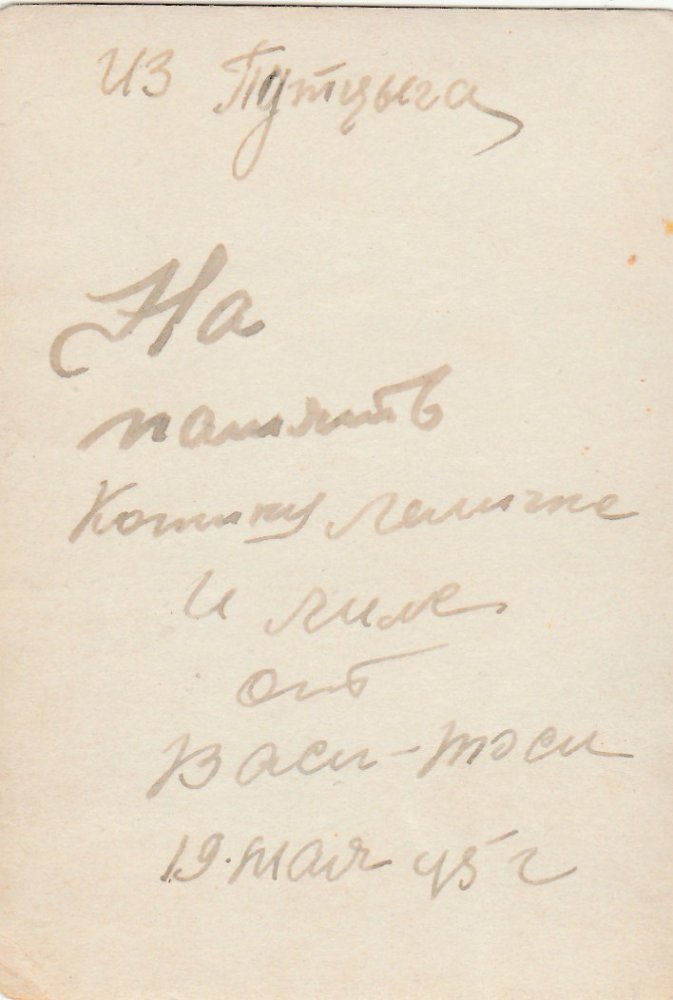 Из Путцыга
На
память
Котику Лемичке
и Миле
от
Васи-Таси
19. мая 45 г